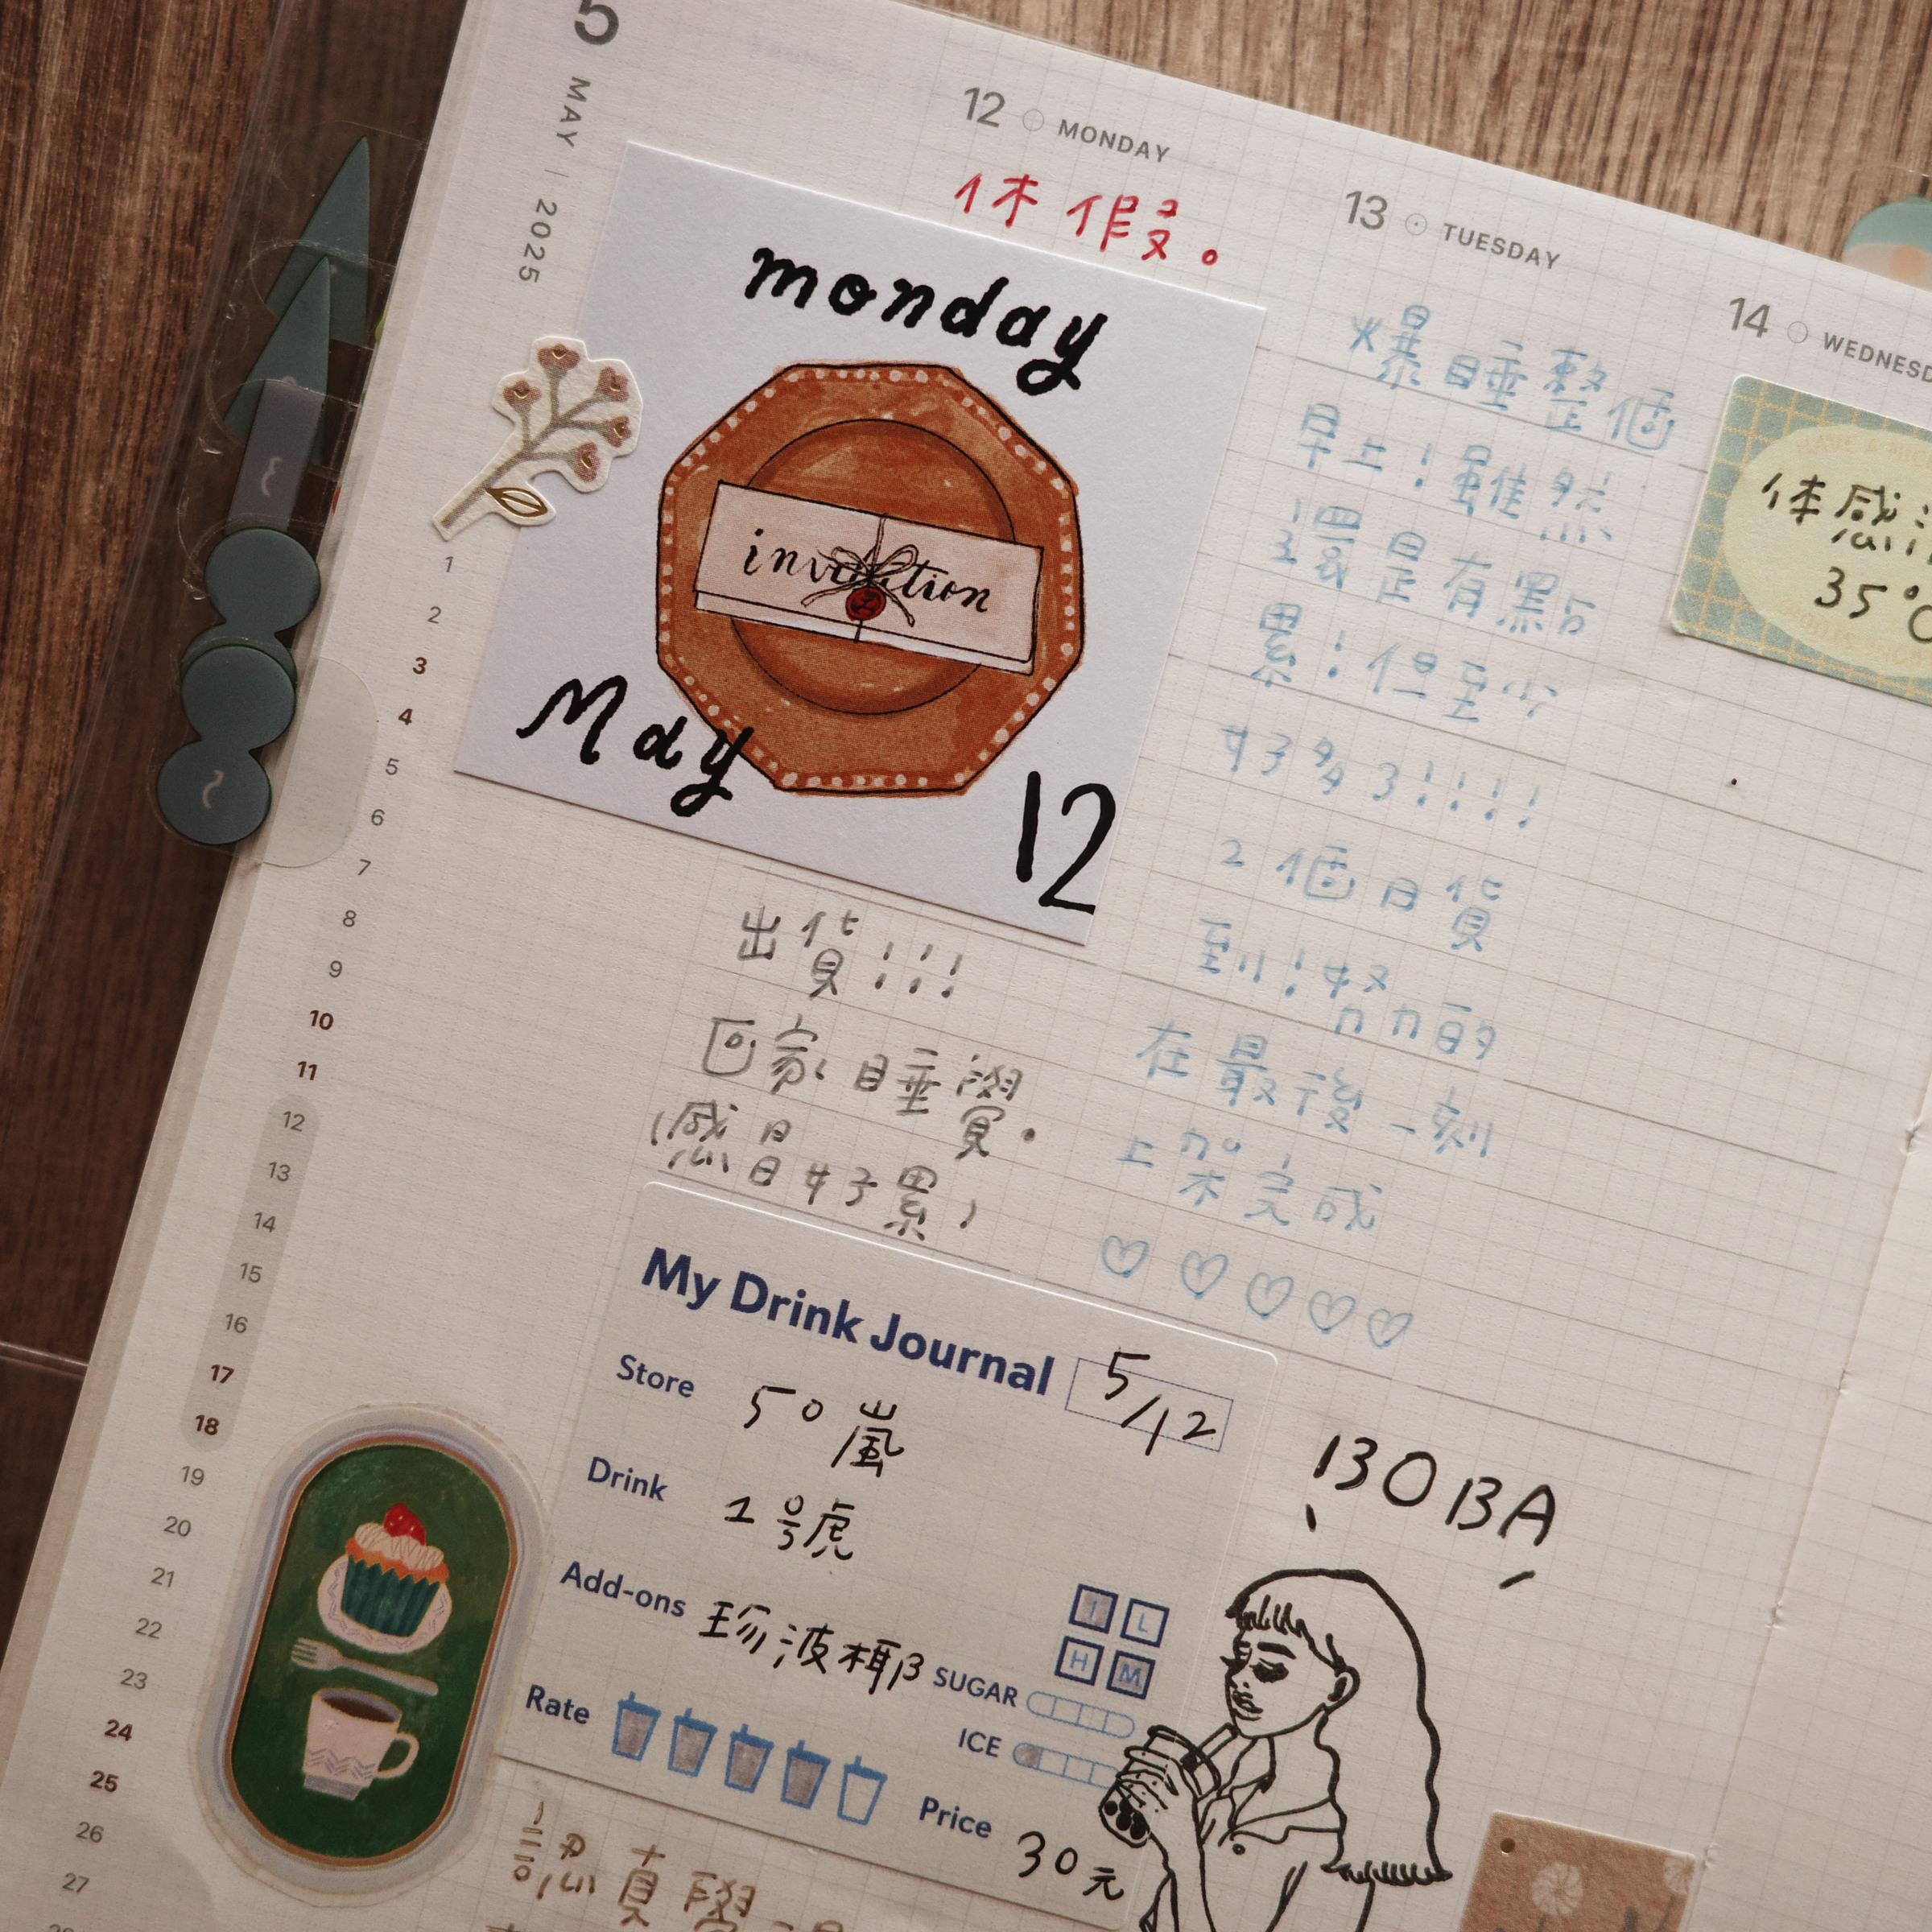 5 MAY | 2025
12 MONDAY
休假。
monday
invitation
May
12
出貨!!!
回家睡覺。
(感冒好累)
My Drink Journal 5/12
Store 50嵐
Drink 1號
Add-ons 珍波椰
I L
H M
SUGAR
ICE
Rate
Price 30元
BOBA
認真學
13 TUESDAY
爆睡整個
早上!雖然
還是有點
累!但至少
好多了!!!!
2個日貨
到!努力
在最後一刻
上架完成
♡♡♡♡♡
14 WEDNESD
体感
35°C
1
2
3
4
5
6
7
8
9
10
11
12
13
14
15
16
17
18
19
20
21
22
23
24
25
26
27
28